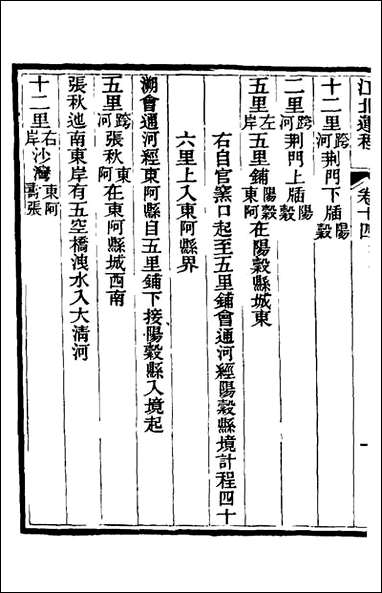 江北運程 卷十四
十二里跨河荆門下牐陽穀
二里跨河荆門上牐陽穀
五里左岸五里鋪陽穀東阿在陽穀縣城東
右自官窯口起至五里鋪會通河經陽穀縣境計程四十
六里上入東阿縣界
溯會通河經東阿縣自五里鋪下接陽穀縣入境起
五里跨河張秋東阿在東阿縣城西南
張秋迤南東岸有五空橋洩水入大清河
十二里右岸沙灣東阿壽張